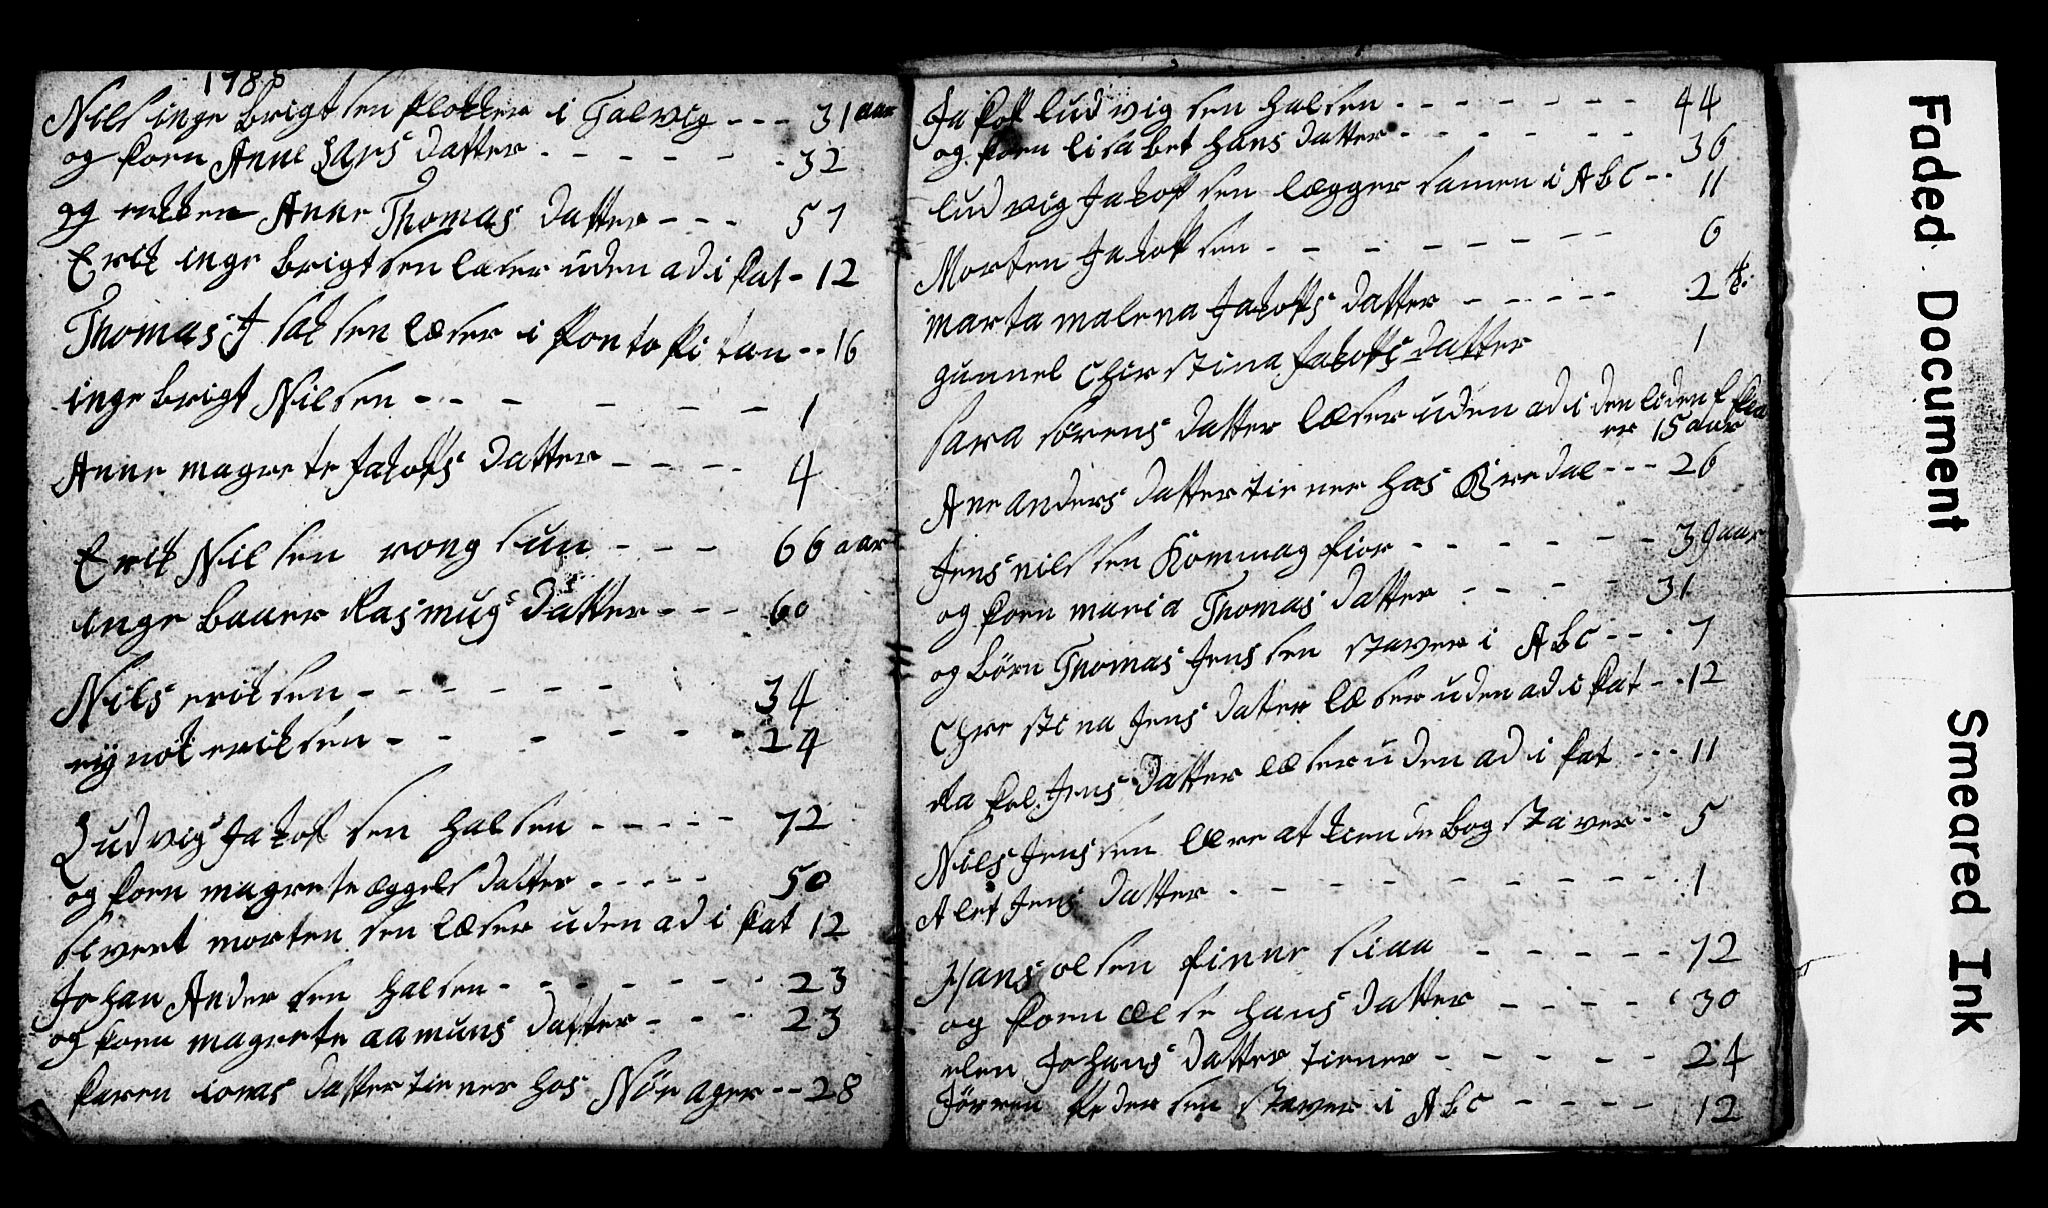 1785
Nils inge brigt sen klokker i Talvig --- 31 aar
og koen Anne Lars datter ------ 32
og enken Anne Thomas datter --- 57
Erik inge brigt sen læser uden ad i kat - 12
Thomas Isaksen læser i Ponto Pi tan -- 16
inge brigt Nilsen ------ 1
Anne magrete Jakobs datter ---- 4
Erik Nilsen rong sun --- 66 aar
inge baaer Rasmus datter --- 60
Nils eriksen ------ 34
eriksen ------ 24
Ludvig Jakob sen halsen ----- 72
og koen magrete æggels datter ----- 50
sivert morten sen læser uden ad i kat 12
Johan Andersen halsen ------- 23
og koen magrete aamuns datter --- 23
karen ionas datter tiener hos Nörager -- 28
Jakob ludvig sen halsen ------- 44
og koen lisabet hans datter ------ 36
ludvig Jakob sen lægger samen i Abc -- 11
Morten Jakob sen -------- 6
marta malena Jakobs datter ----- 2
gunnel Chirstina Jakobs datter 1
sara sørens datter læser uden ad i den liden
er 15 aar
Ane anders datter tiener hos --- 26
Jens nilssen Kommag fior ------ 39 aar
og koen maria Thomas datter ---- 31
og börn Thomas Jens sen staver i Abc --- 7
Chrestina Jens datter læser uden ad i kat -- 12
Rakel Jens datter læser uden ad i kat --- 11
Nils Jens sen lære at kiende bog staver -- 5
Alet Jens datter ---------- 1
Hans olsen finne siaa ----- 72
og koen ælse hans datter ---- 30
elen Johans datter tiener ----- 24
Jörren Peder sen staver i Abc ---- 12
Faded Document
Smeared Ink